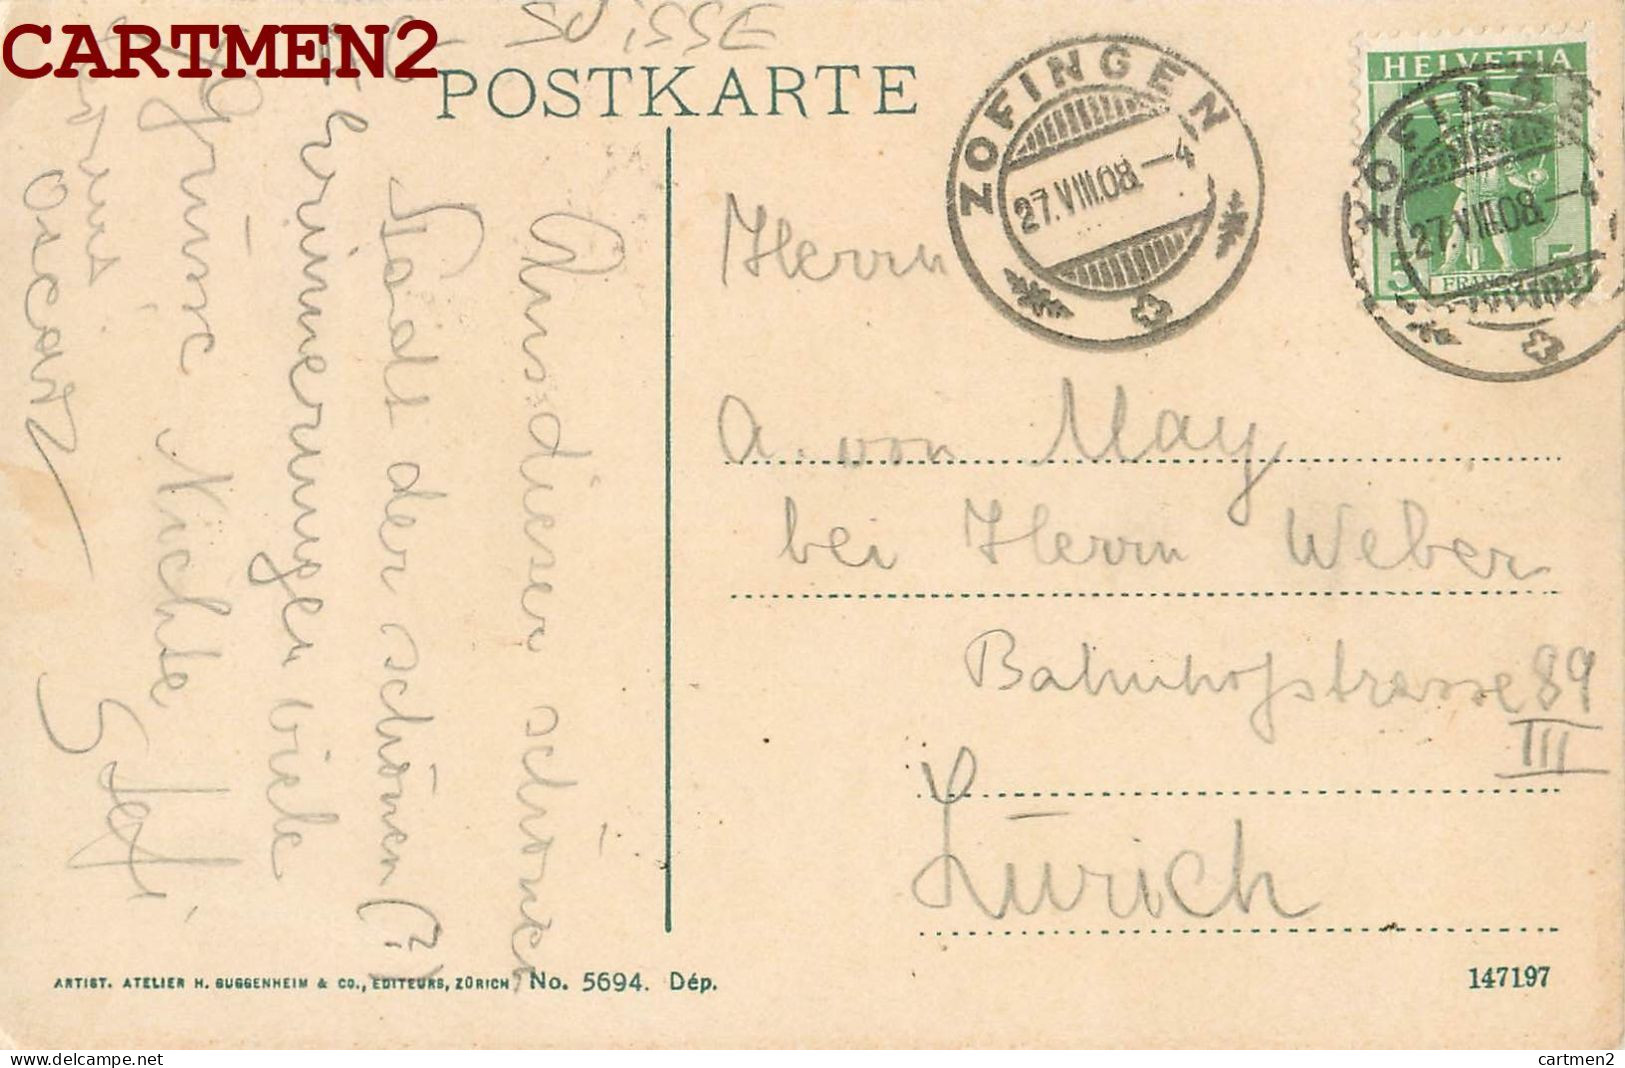 CARTMEN2
POSTKARTE
ZOFINGEN
27.VIII.08.–4
HELVETIA
5
FRANCO
ZOFINGEN
27.VIII.08.–4
Herrn
A. von May
bei Herrn Weber
Bahnhofstrasse 89
III
Zürich
Aus dieser schönen
Stadt der schönen (?)
Erinnerungen viele
Grüsse Nichte
Oscar
ARTIST. ATELIER H. GUGGENHEIM & CO., EDITEURS, ZÜRICH, No. 5694. Dép.
147197
delcampe.net
cartmen2